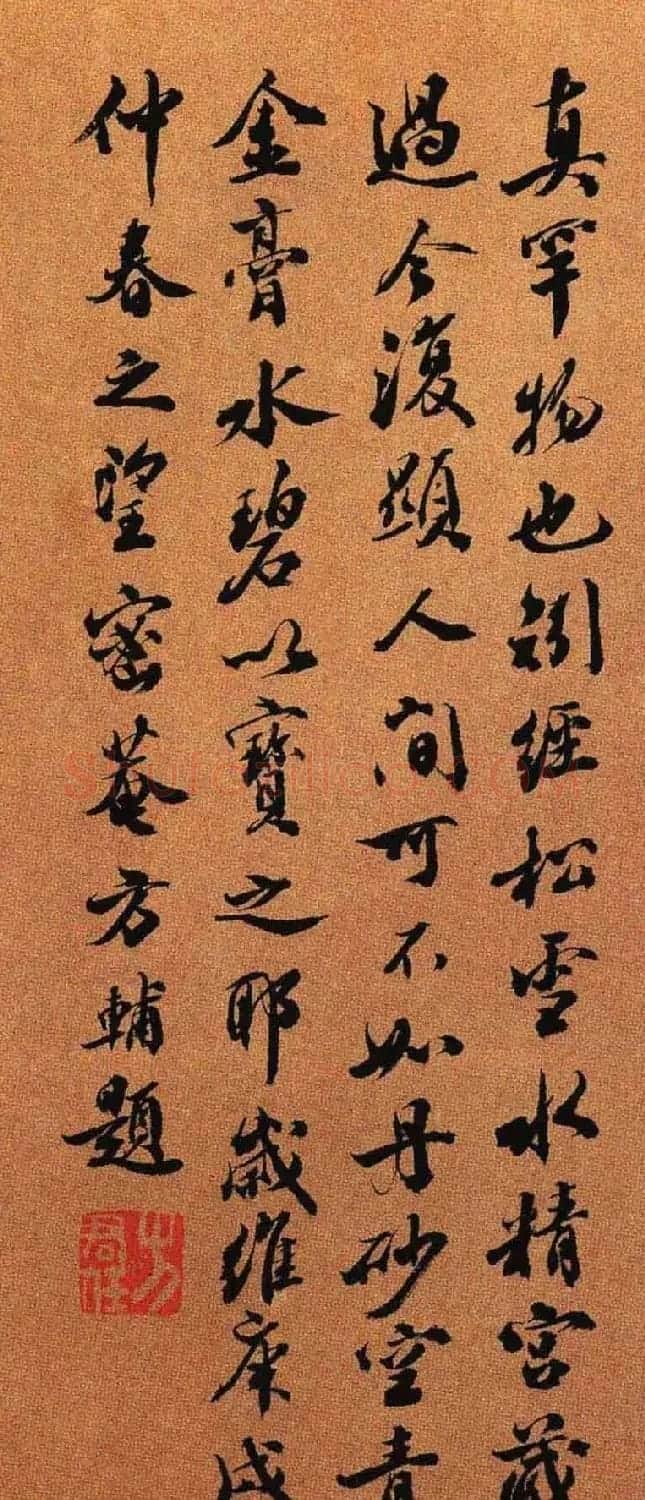 真罕物也劄經松雪水精宮藏
過今復顯人間可不如丹砂空青
金膏水碧以寶之耶歲維庚戌
仲春之望密菴方輔題